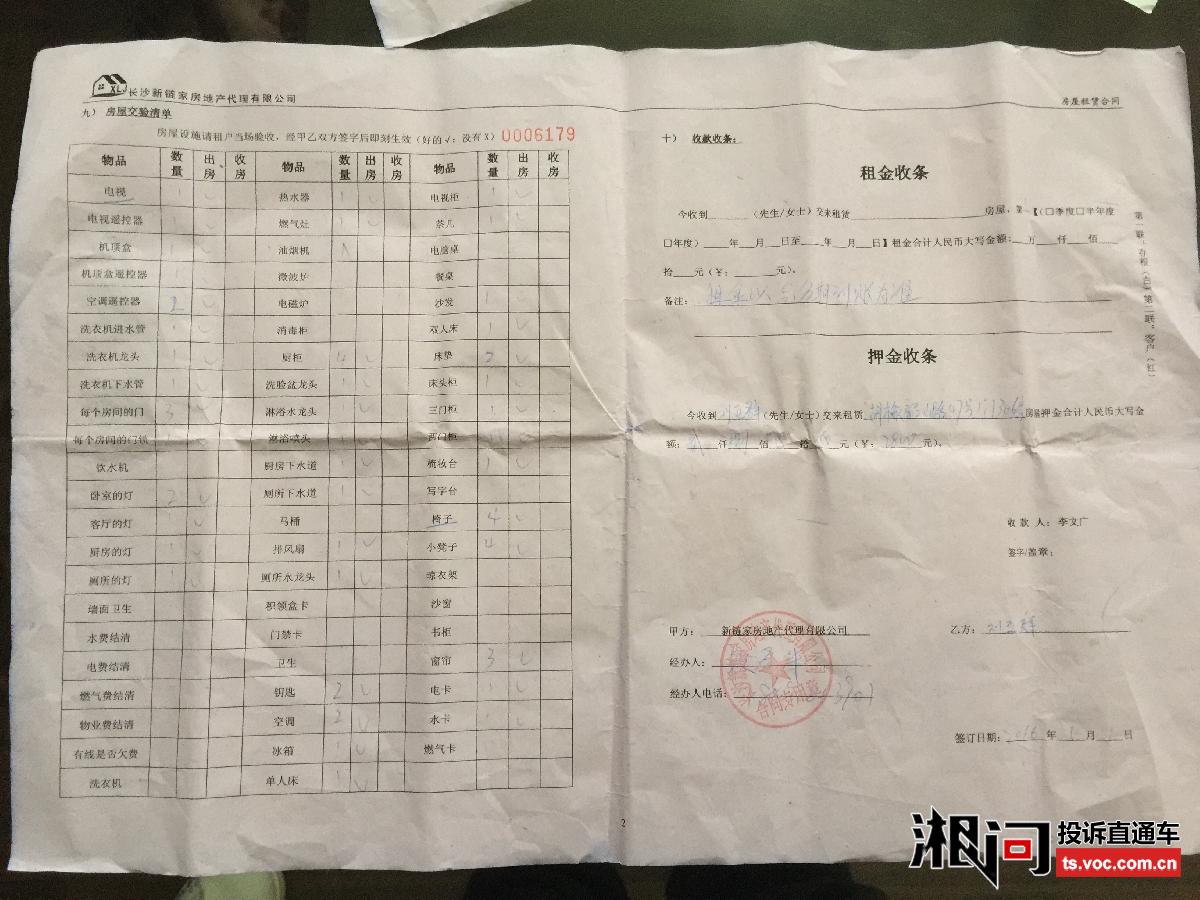 长沙新链家房地产代理有限公司
九） 房屋交验清单
房屋设施请租户当场验收，经甲乙双方签字后即刻生效（好的√；没有X） 0006179
物品 数量 出房 收房 物品 数量 出房 收房 物品 数量 出房 收房
电视 1 √ 热水器 1 √ 电视柜 1 √
电视遥控器 燃气灶 1 √ 茶几 1 √
机顶盒 1 √ 油烟机 电脑桌
机顶盒遥控器 1 √ 微波炉 餐桌
空调遥控器 2 √ 电磁炉 沙发 1 √
洗衣机进水管 1 √ 消毒柜 双人床 1 √
洗衣机龙头 1 √ 厨柜 4 √ 床垫 2 √
洗衣机下水管 1 √ 洗脸盆龙头 1 √ 床头柜 1 √
每个房间的门 3 √ 淋浴水龙头 1 √ 三门柜 1 √
每个房间的门锁 淋浴喷头 两门柜
饮水机 厨房下水道 1 √ 梳妆台 1 √
卧室的灯 2 √ 厕所下水道 1 √ 写字台
客厅的灯 √ 马桶 椅子 4 √
厨房的灯 1 √ 排风扇 1 √ 小凳子 4 √
厕所的灯 1 √ 厕所水龙头 1 √ 晾衣架
墙面卫生 积领盒卡 沙窗
水费结清 门禁卡 书柜
电费结清 卫生 窗帘 3 √
燃气费结清 钥匙 2 √ 电卡 1 √
物业费结清 空调 2 √ 水卡 1 √
有线是否欠费 冰箱 1 √ 燃气卡
洗衣机 单人床 1 √
2
房屋租赁合同
十） 收款收条：
租金收条
今收到______（先生/女士）交来租赁______房屋，第__【（□季度□半年度
□年度）____年__月__日至__年__月__日】租金合计人民币大写金额：__万__仟__佰
拾__元（￥：______元）。
备注：
押金收条
今收到（先生/女士）交来租赁 房屋押金合计人民币大写金
额： 仟 佰 拾 元（￥： 元）。
收款人：李文广
签字/盖章：
甲方： 新链家房地产代理有限公司
乙方：
经办人：
经办人电话：
合同专用章
签订日期：2016年5月 日
第一联：存根（白）第二联：客户（红）
湘问 投诉直通车
ts.voc.com.cn